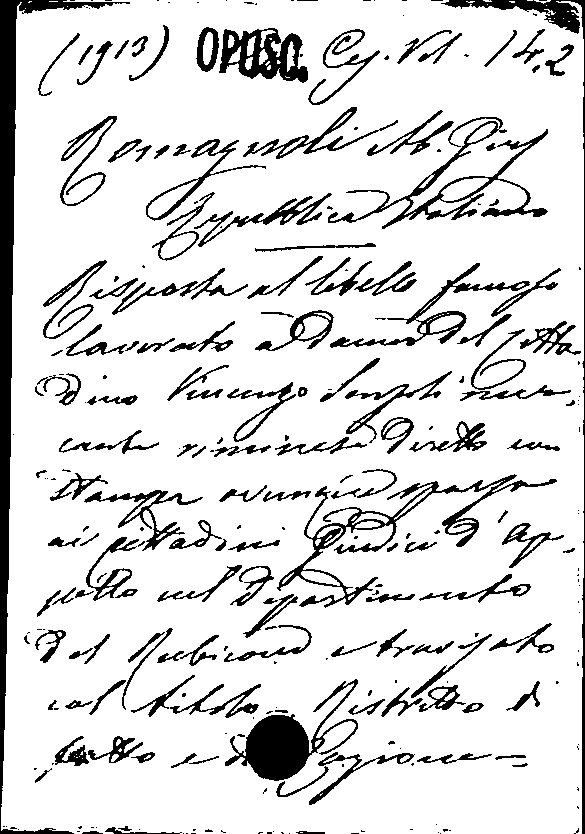 (1913) OPUSC. Cey. Vol. 14.2
Romagnoli Ab. Gius
Repubblica Italiana
Risposta al libello famoso
lavorato a danno del citta
dino Vincenzo mer,
cante riminese diretto con
stampa ovunque sparsa
ai cittadini Giudici d'Ap,
pello nel Dipartimento
del Rubicone e travisato
col titolo - Ristretto di
fatto e di Ragione -